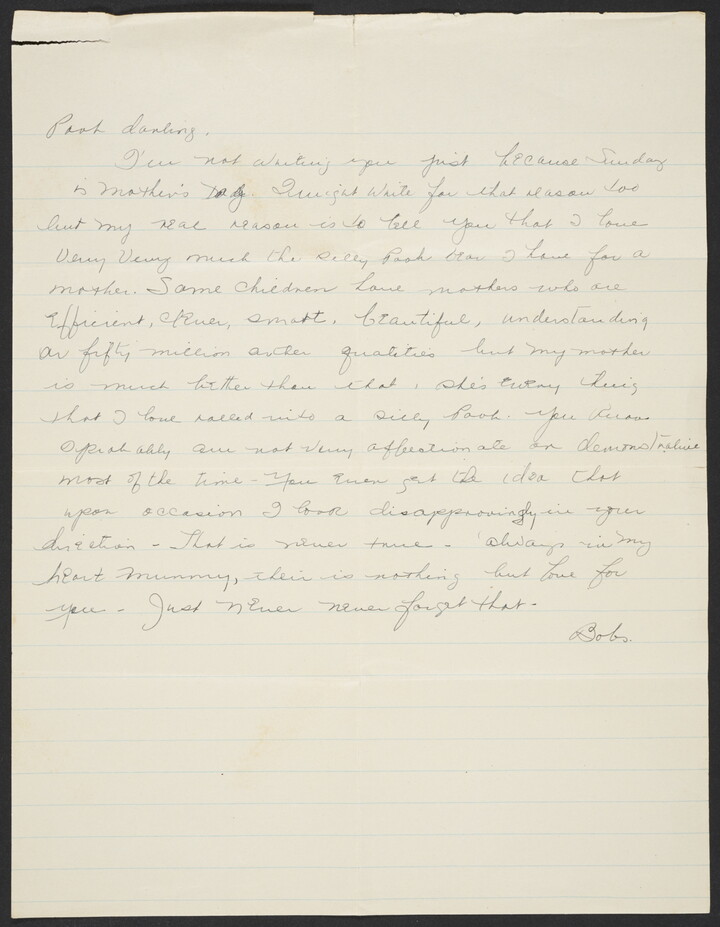 Pooh darling.
I'm not writing you just because Sunday
is Mother's Day. I might write for that reason too
but my real reason is to tell you that I love
very very much the silly Pooh bear I have for a
mother. Some children have mothers who are
efficient, clever, smart, beautiful, understanding
or fifty million other qualities but my mother
is much better than that, she's every thing
that I love rolled into a silly Pooh. You know
I probably am not very affectionate or demonstrative
most of the time - You even get the idea that
upon occasion I look disapprovingly in your
direction - That is never true - always in my
heart Mummy, their is nothing but love for
you - Just never never forget that -
Bobs.